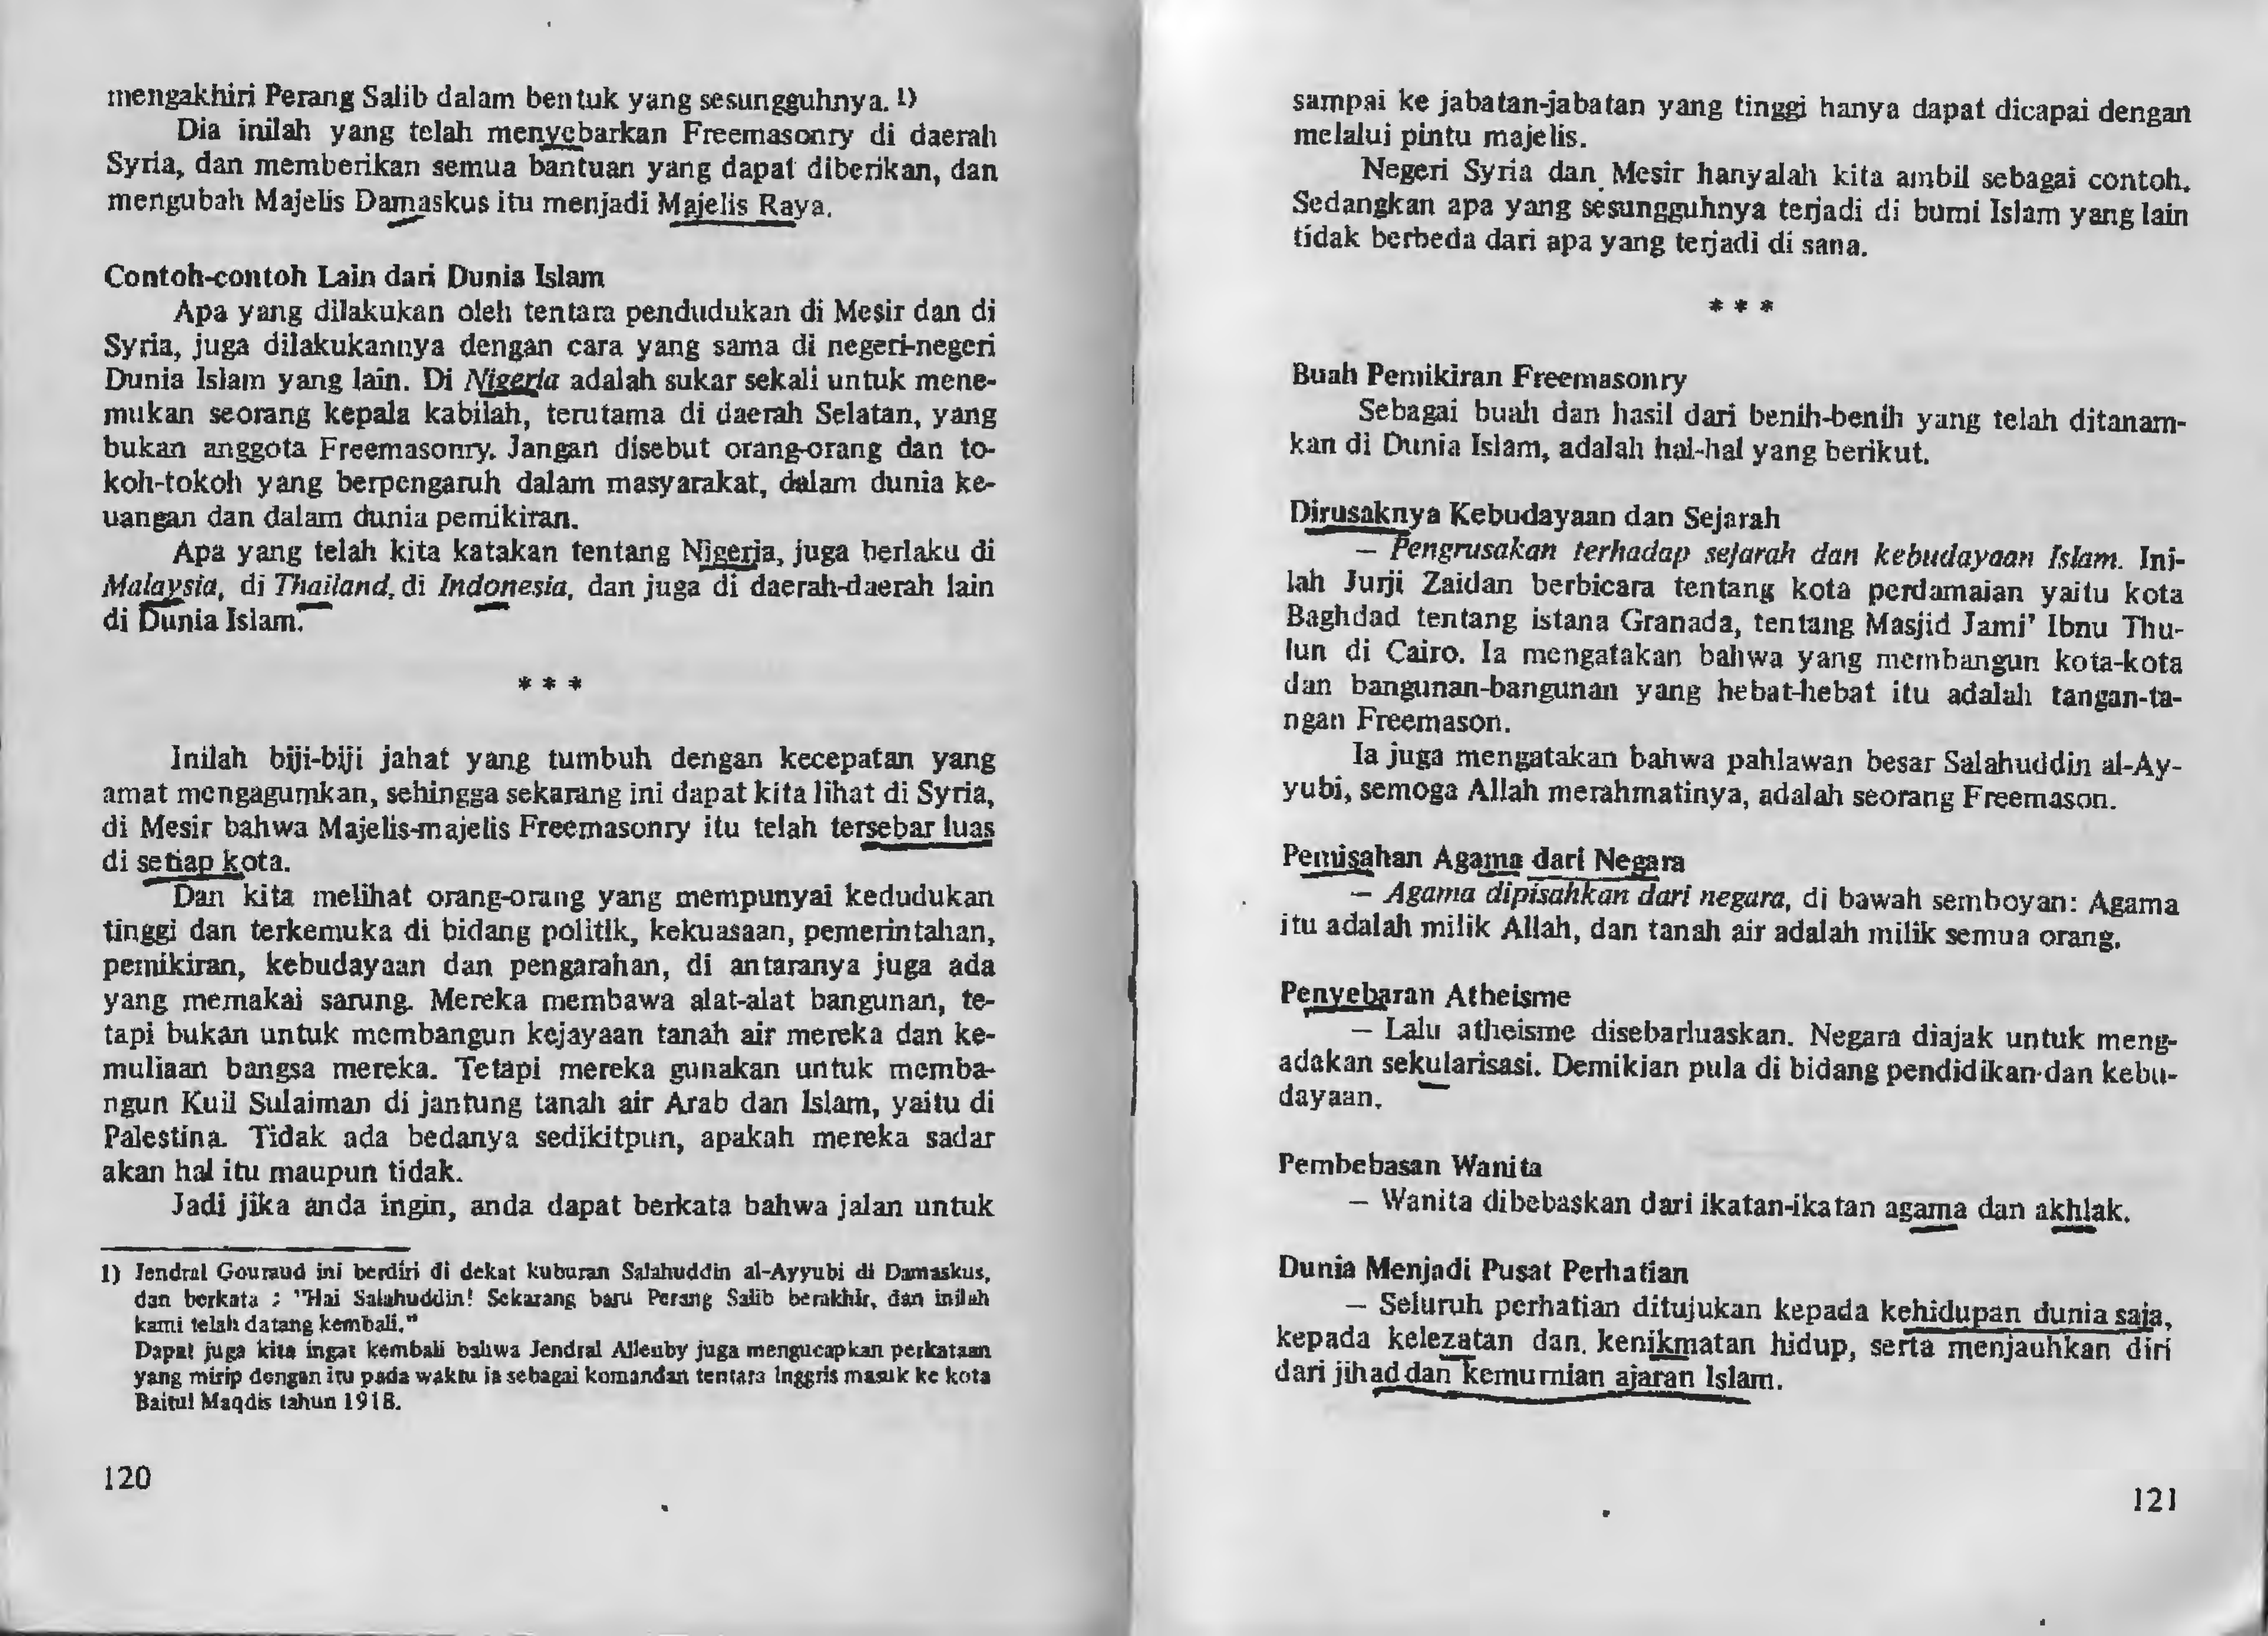 mengakhiri Perang Salib dalam bentuk yang sesungguhnya. 1)
Dia inilah yang telah menyebarkan Freemasonry di daerah
Syria, dan memberikan semua bantuan yang dapat diberikan, dan
mengubah Majelis Damaskus itu menjadi Majelis Raya.
Contoh-contoh Lain dari Dunia Islam
Apa yang dilakukan oleh tentara pendudukan di Mesir dan di
Syria, juga dilakukannya dengan cara yang sama di negeri-negeri
Dunia Islam yang lain. Di Nigeria adalah sukar sekali untuk mene-
mukan seorang kepala kabilah, terutama di daerah Selatan, yang
bukan anggota Freemasonry. Jangan disebut orang-orang dan to-
koh-tokoh yang berpengaruh dalam masyarakat, dalam dunia ke-
uangan dan dalam dunia pemikiran.
Apa yang telah kita katakan tentang Nigeria, juga berlaku di
Malaysia, di Thailand, di Indonesia, dan juga di daerah-daerah lain
di Dunia Islam.
* * *
Inilah biji-biji jahat yang tumbuh dengan kecepatan yang
amat mengagumkan, sehingga sekarang ini dapat kita lihat di Syria,
di Mesir bahwa Majelis-majelis Freemasonry itu telah tersebar luas
di setiap kota.
Dan kita melihat orang-orang yang mempunyai kedudukan
tinggi dan terkemuka di bidang politik, kekuasaan, pemerintahan,
pemikiran, kebudayaan dan pengarahan, di antaranya juga ada
yang memakai sarung. Mereka membawa alat-alat bangunan, te-
tapi bukan untuk membangun kejayaan tanah air mereka dan ke-
muliaan bangsa mereka. Tetapi mereka gunakan untuk memba-
ngun Kuil Sulaiman di jantung tanah air Arab dan Islam, yaitu di
Palestina. Tidak ada bedanya sedikitpun, apakah mereka sadar
akan hal itu maupun tidak.
Jadi jika anda ingin, anda dapat berkata bahwa jalan untuk
1) Jendral Gouraud ini berdiri di dekat kuburan Salahuddin al-Ayyubi di Damaskus,
dan berkata : "Hai Salahuddin! Sekarang baru Perang Salib berakhir, dan inilah
kami telah datang kembali."
Dapat juga kita ingat kembali bahwa Jendral Allenby juga mengucapkan perkataan
yang mirip dengan itu pada waktu ia sebagai komandan tentara Inggris masuk ke kota
Baitul Maqdis tahun 1918.
120
sampai ke jabatan-jabatan yang tinggi hanya dapat dicapai dengan
melalui pintu majelis.
Negeri Syria dan Mesir hanyalah kita ambil sebagai contoh.
Sedangkan apa yang sesungguhnya terjadi di bumi Islam yang lain
tidak berbeda dari apa yang terjadi di sana.
* * *
Buah Pemikiran Freemasonry
Sebagai buah dan hasil dari benih-benih yang telah ditanam-
kan di Dunia Islam, adalah hal-hal yang berikut.
Dirusaknya Kebudayaan dan Sejarah
— Pengrusakan terhadap sejarah dan kebudayaan Islam. Ini-
lah Jurji Zaidan berbicara tentang kota perdamaian yaitu kota
Baghdad tentang istana Granada, tentang Masjid Jami' Ibnu Thu-
lun di Cairo. Ia mengatakan bahwa yang membangun kota-kota
dan bangunan-bangunan yang hebat-hebat itu adalah tangan-ta-
ngan Freemason.
Ia juga mengatakan bahwa pahlawan besar Salahuddin al-Ay-
yubi, semoga Allah merahmatinya, adalah seorang Freemason.
Pemisahan Agama dari Negara
— Agama dipisahkan dari negara, di bawah semboyan: Agama
itu adalah milik Allah, dan tanah air adalah milik semua orang.
Penyebaran Atheisme
— Lalu atheisme disebarluaskan. Negara diajak untuk meng-
adakan sekularisasi. Demikian pula di bidang pendidikan dan kebu-
dayaan.
Pembebasan Wanita
— Wanita dibebaskan dari ikatan-ikatan agama dan akhlak.
Dunia Menjadi Pusat Perhatian
— Seluruh perhatian ditujukan kepada kehidupan dunia saja,
kepada kelezatan dan. kenikmatan hidup, serta menjauhkan diri
dari jihad dan kemurnian ajaran Islam.
121